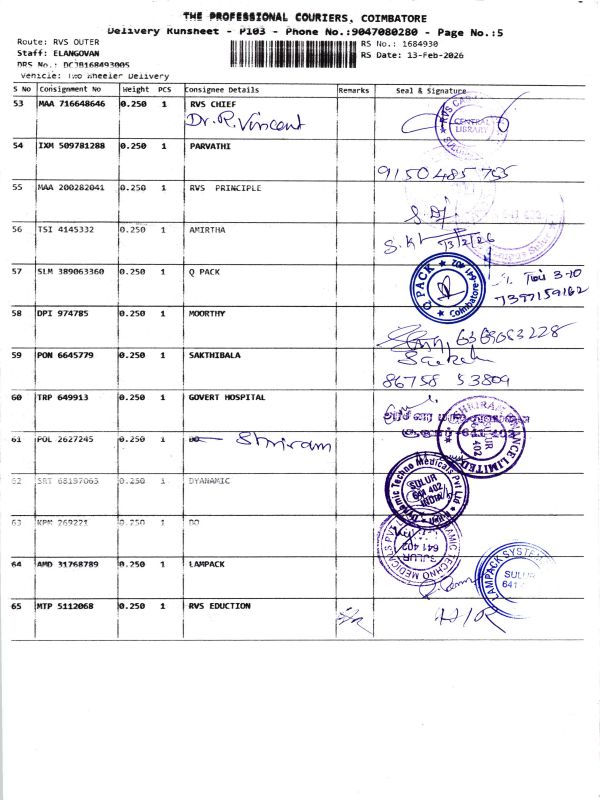 THE PROFESSIONAL COURIERS, COIMBATORE
Delivery Runsheet - P103 - Phone No.:9047080280 - Page No.:5
Route: RVS OUTER
RS No.: 1684930
Staff: ELANGOVAN
RS Date: 13-Feb-2026
DRS No.: DCJB168493005
Vehicle: Two Wheeler Delivery
S No Consignment No Weight PCS Consignee Details Remarks Seal & Signature
53 MAA 716648646 0.250 1 RVS CHIEF
Dr. R. Vincent
CENTRAL LIBRARY
54 IXM 509781288 0.250 1 PARVATHI
9150485755
55 MAA 200282041 0.250 1 RVS PRINCIPLE
56 TSI 4145332 0.250 1 AMIRTHA
13/2/26
57 SLM 389063360 0.250 1 Q PACK
Q PACK
Coimbatore
7397159162
58 DPI 974785 0.250 1 MOORTHY
6369063228
59 PON 6645779 0.250 1 SAKTHIBALA
86758 53809
60 TRP 649913 0.250 1 GOVERT HOSPITAL
61 POL 2627245 0.250 1 Shriram
SULUR
641 402
62 SRT 68197063 0.250 1 DYANAMIC
Dynamic Techno Medicals Pvt Ltd
SULUR
641 402
INDIA
63 KPM 269221 0.250 1 DO
SULUR
641 402
64 AMD 31768789 0.250 1 LAMPACK
LAMPACK SYSTEM
SULUR
65 MTP 5112068 0.250 1 RVS EDUCTION